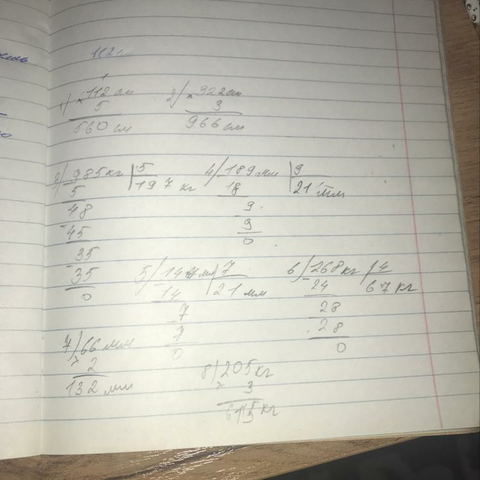 112
1
1) × 112 см   2) × 322 см
5   3
560 см   966 см
3) 985 кг | 5   4) 189 мм | 9
5   197 кг   18   21 мм
48   9
45   9
35   0
35
0
5) 147 мм | 7   6) 268 кг | 4
14   21 мм   24   67 кг
7   28
7   28
0   0
7) 66 мм
× 2
132 мм
8) 205 кг
× 3
615 кг